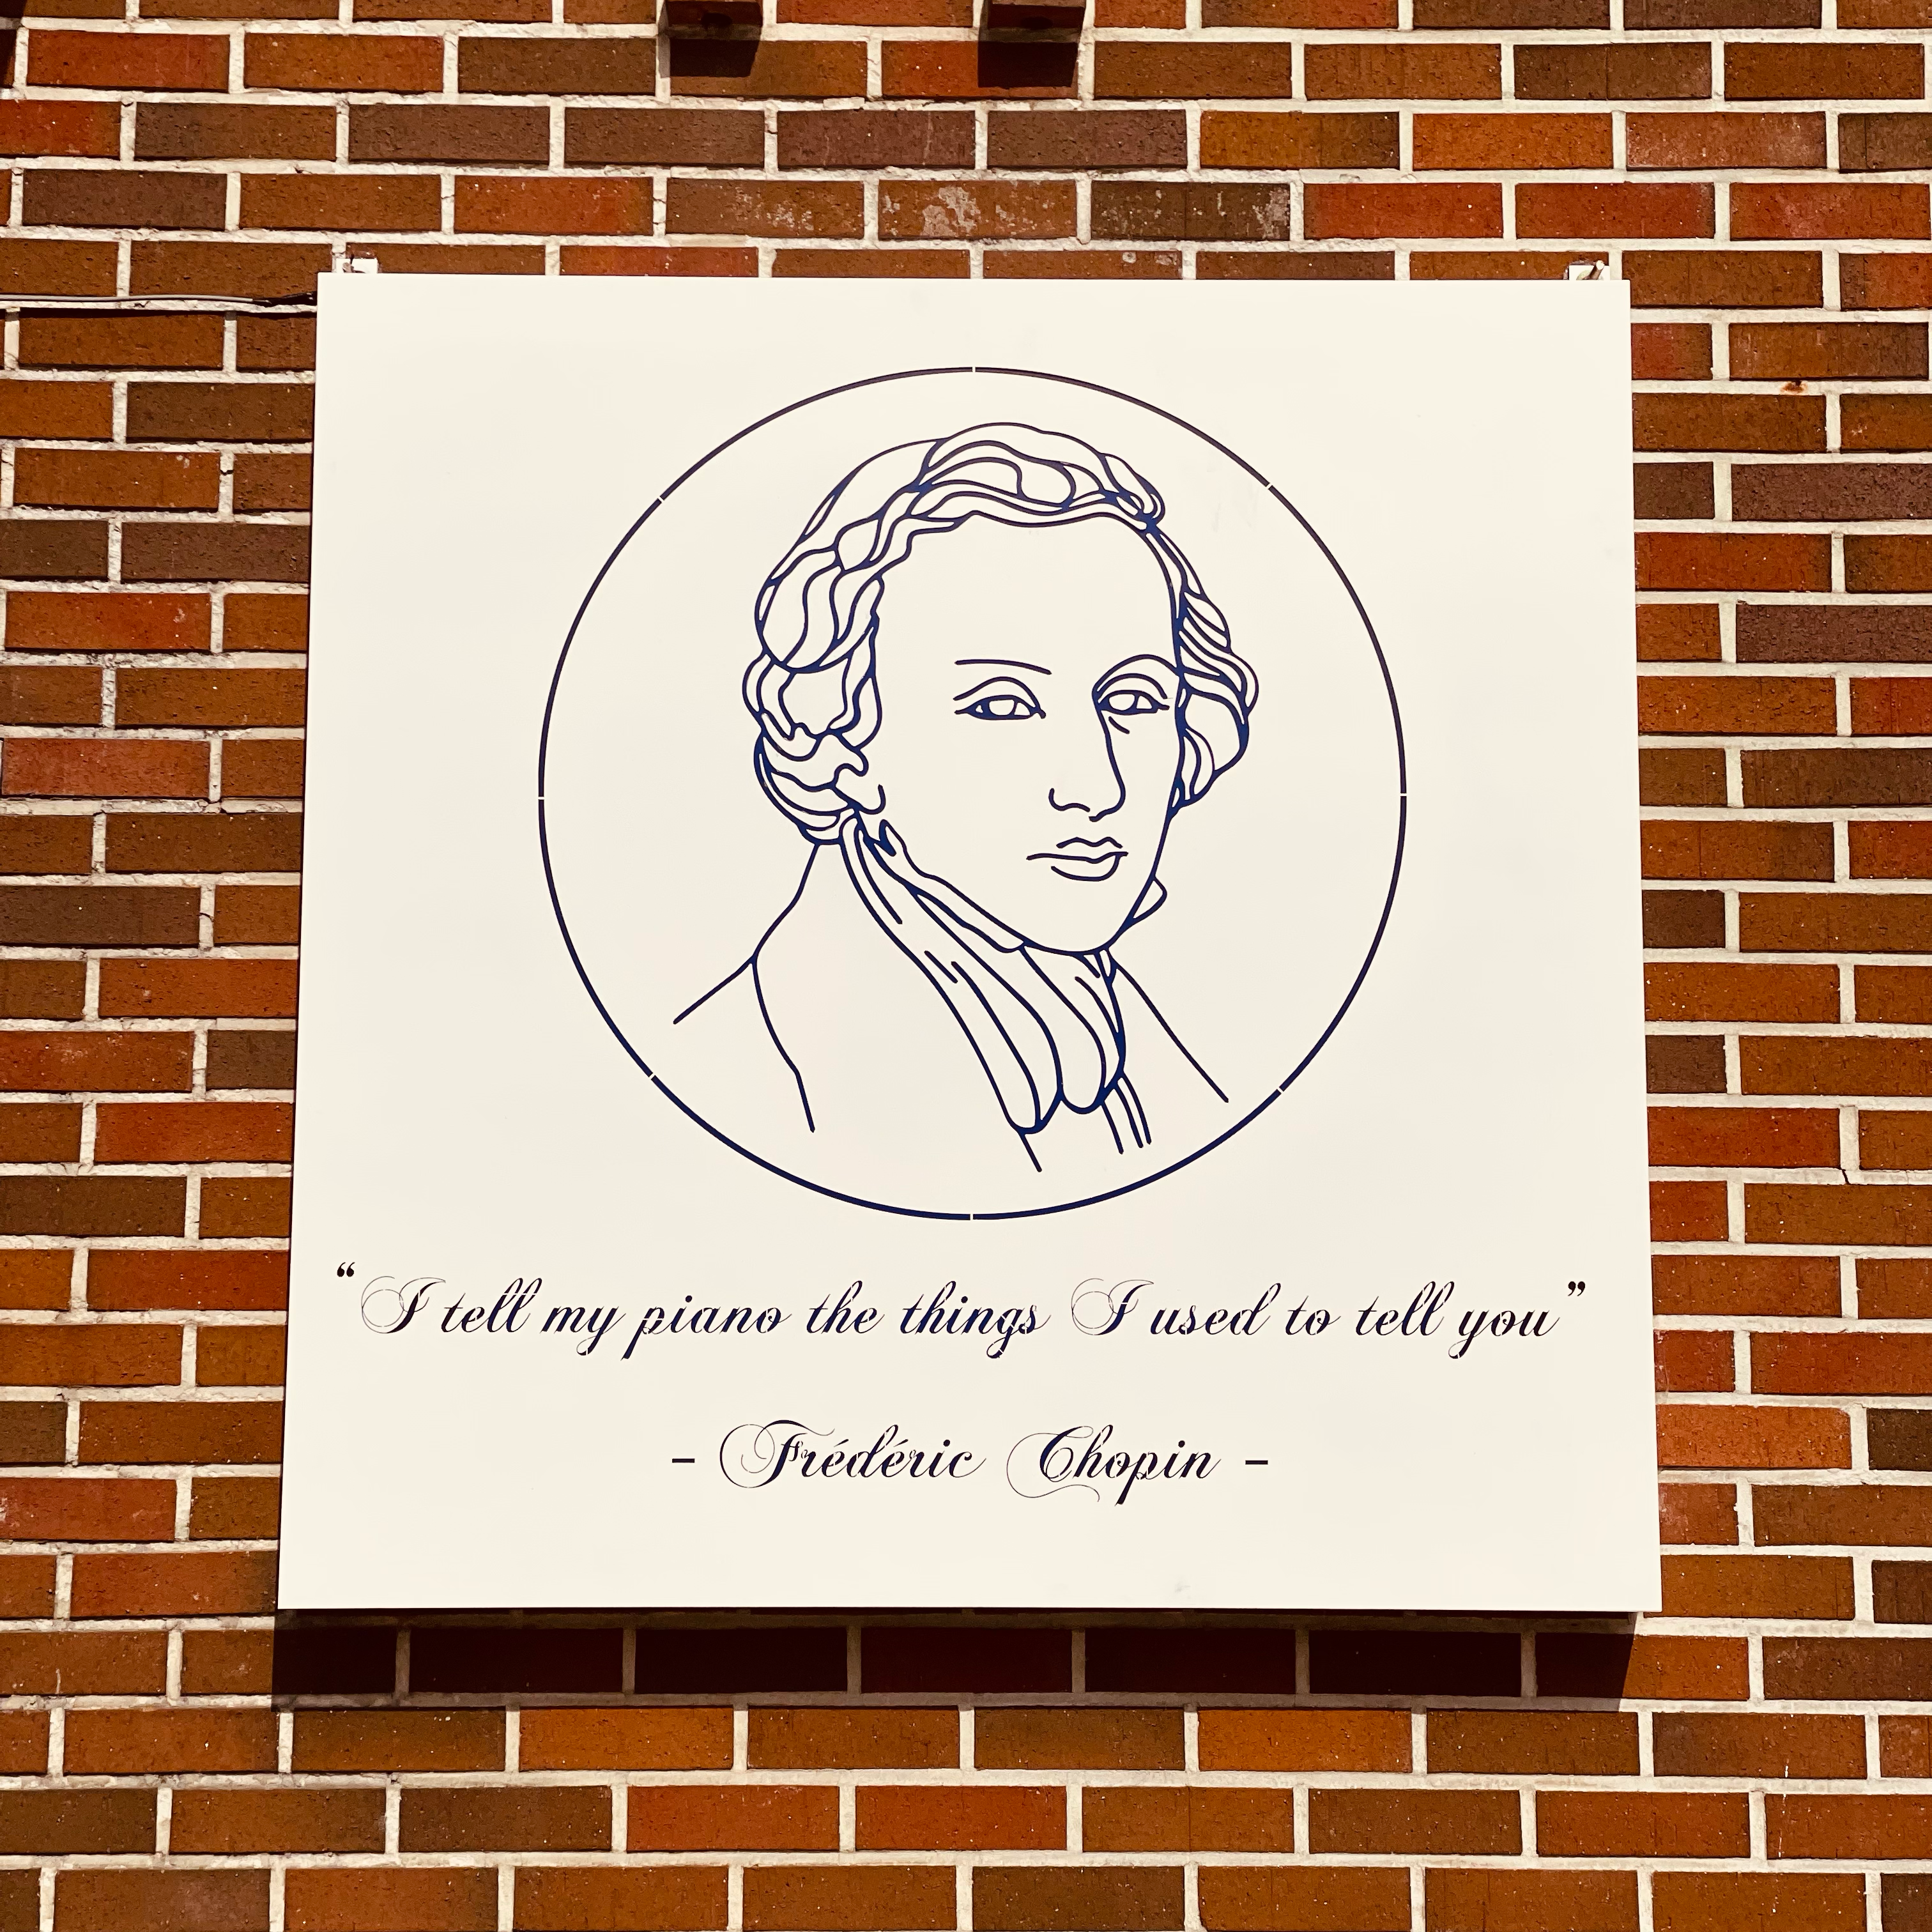 “I tell my piano the things I used to tell you”
- Frédéric Chopin -